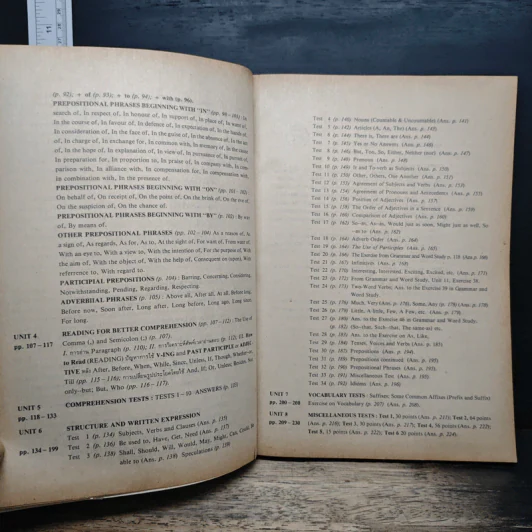 (p. 92); + of (p. 93); + to (p. 94); + with (p. 96).
PREPOSITIONAL PHRASES BEGINNING WITH "IN" (pp. 98 - 101) In
search of, In respect of, In honour of, In support of, In place of, In want of,
In the course of, In favour of, In defence of, In expectation of, In the hands of,
In consideration of, In the face of, In the guise of, In the absence of, In the act
of, In charge of, In exchange for, In common with, In memory of, In the teeth
of, In the hope of, In explanation of, In view of, In pursuance of, In pursuit of,
In preparation for, In proportion to, In praise of, In company with, In com-
parison with, In alliance with, In compensation for, In compensation
In combination with, In the presence of.
PREPOSITIONAL PHRASES BEGINNING WITH "ON" (pp. 101 - 102)
On behalf of, On receipt of, On the point of, On the brink of, On the eve of,
On the suspicion of, On the chance of.
PREPOSITIONAL PHRASES BEGINNING WITH "BY" (p. 102) : By way
of, By means of.
OTHER PREPOSITIONAL PHRASES (pp. 102 - 104) As a reason of, As
a sign of, As regards, As for, As to, At the sight of, For want of, From want of
With an eye to, With a view to, With the intention of, For the purpose of, With
the aim of, With the object of, With the help of, Consequent on (upon), With
reference to, With regard to.
PARTICIPIAL PREPOSITIONS (p. 104) : Barring, Concerning, Considering,
Notwithstanding, Pending, Regarding, Respecting.
ADVERBIAL PHRASES (p. 105) : Above all, After all, At all, Before long,
Before now, Soon after, Long after, Long before, Long ago, Long since,
For long.
UNIT 4 READING FOR BETTER COMPREHENSION (pp. 107 - 112) : The Use of
pp. 107 - 117 Comma (,) and Semicolon (;) (p. 107).
I. การหา Paragraph (p. 110), II. How
to Read (READING) V-ING and PAST PARTICIPLE
TIVE After, Before, When, While, Since, Unless, If, Though, Whether-or,
Till (pp. 115 - 116); And, If; Or, Unless, Besides, Not
only-but; But, Who (pp. 116 - 117).
UNIT 5 COMPREHENSION TESTS : TESTS 1 - 10: ANSWERS (p. 133)
pp. 118 - 133
UNIT 6 STRUCTURE AND WRITTEN EXPRESSION
pp. 134 - 199 Test 1 (p. 134) Subjects, Verbs and Clauses (Ans. p. 135)
Test 2 (p. 136) Be used to, Have, Get, Need (Ans. p. 137)
Test 3 (p. 138) Shall, Should, Will, Would, May, Might, Can, Could, Be
able to (Ans. p. 139) Speculations (p. 139)
Test 4 (p. 140) Nouns (Countable & Uncountable) (Ans. p. 141)
Test 5 (p. 142) Articles (A, An, The) (Ans. p. 143)
Test 6 (p. 144) There is, There are (Ans. p. 144)
Test 7 (p. 145) Yes or No Answers. (Ans. p. 146)
Test 8 (p. 146) But, Too, So, Either, Neither (nor) (Ans. p. 147)
Test 9 (p. 148) Pronouns (Ans. p. 149)
Test 10 (p. 150) It and To-verb as Subjects (Ans. p. 150)
Test 11 (p. 150) Other, Others, One Another (Ans. p. 151)
Test 12 (p. 153) Agreement of Subjects and Verbs (Ans. p. 153)
Test 13 (p. 154) Agreement of Pronouns and Antecedents (Ans. p. 155)
Test 14 (p. 156) Position of Adjectives (Ans. p. 157)
Test 15 (p. 158) The Order of Adjectives in a Sentence (Ans. p. 159)
Test 16 (p. 160) Comparison of Adjectives (Ans. p. 160)
Test 17 (p. 162) So-as, As-as, Would just as soon, Might just as well, So
-as to (Ans. p. 162)
Test 18 (p. 164) Adverb Order (Ans. p. 164)
Test 19 (p. 164) The Use of Participles (Ans. p. 165)
Test 20 (p. 166) The Exercise from Grammar and Word Study p. 118 (Ans. p. 166)
Test 21 (p. 167) Infinitives (Ans. p. 169)
Test 22 (p. 170) Interesting, Interested, Exciting, Excited, etc. (Ans. p. 171)
Test 23 (p. 172) From Grammar and Word Study, Unit 11, Exercise 38
Test 24 (p. 174) Two-Word Verbs; Ans. to the Exercise 39 in Grammar and
Word Study
Test 25 (p. 176) Much, Very (Ans. p. 178) Some, Any (p. 179) (Ans. p. 179)
Test 26 (p. 179) Little, A little, Few, A Few, etc. (Ans. p. 179)
Test 27 (p. 180) Ans. to the Exercise in Grammar and Word Study,
(p. 182) (So--that, Such--that, The same-as) etc.
Test 28 (p. 183) Ans. to the Exercise on As, Like,
Test 29 (p. 184) Tenses, Voices and Verbs (Ans. p. 185)
Test 30 (p. 185) Prepositions (Ans. p. 194)
Test 31 (p. 187) Prepositions continued (Ans. p. 195)
Test 32 (p. 190) Prepositional Phrases (Ans. p. 195)
Test 33 (p. 191) Miscellaneous Test (Ans. p. 195)
Test 34 (p. 192) Idioms (Ans. p. 196)
UNIT 7 VOCABULARY TESTS : Suffixes: Some Common Affixes (Prefix and Suffix)
pp. 200 - 208 Exercise on Vocabulary (p. 205) (Ans. p. 208)
UNIT 8 MISCELLANEOUS TESTS : Test 1, 30 points (Ans. p. 215); Test 2, 64 points
pp. 209 - 230 (Ans. p. 216); Test 3, 30 points (Ans. p. 217); Test 4, 36 points (Ans. p. 222);
Test 5, 15 points (Ans. p. 222); Test 6 20 points (Ans. p. 224).